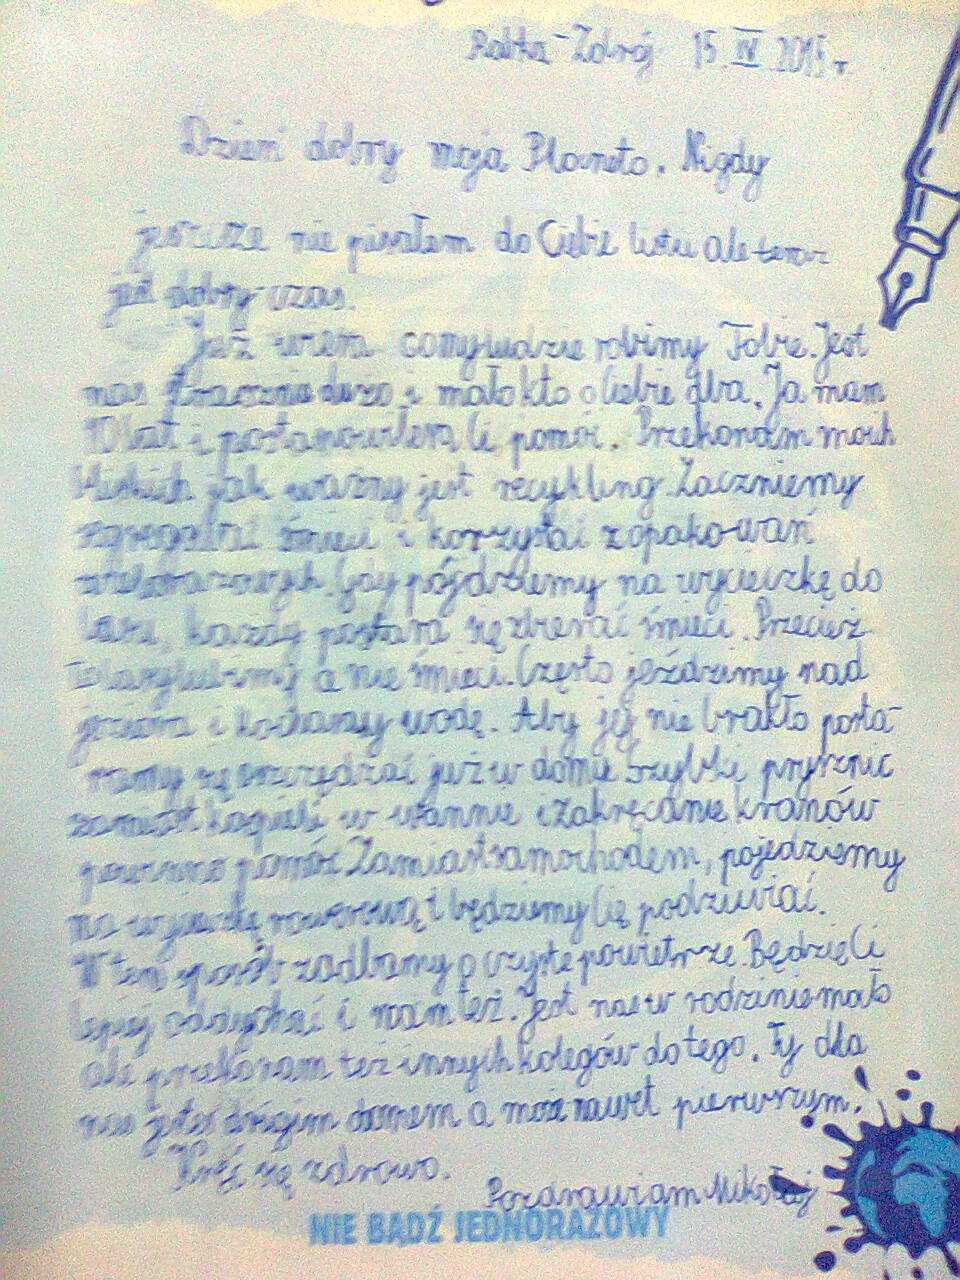 Rabka-Zdrój 15 IV 2015r
Dzień dobry moja Planeto. Nigdy
jeszcze nie pisałem do Ciebie listu ale teraz
jest dobry czas.
Już wiem co my ludzie robimy Tobie. Jest
nas strasznie dużo i mało kto o Ciebie dba. Ja mam
10 lat i postanowiłem Ci pomóc. Przekonam moich
bliskich jak ważny jest recykling. Zaczniemy
segregować śmieci i korzystać z opakowań
wielorazowych. Gdy pójdziemy na wycieczkę do
lasu, każdy postara się zbierać śmieci. Przecież
to my a nie śmieci. Często jeździmy nad
jeziora i kochamy wodę. Aby jej nie brakło posta-
ramy się oszczędzać już w domu. Szybki prysznic
zamiast kąpieli w wannie i zakręcanie kranów
pomóc. Zamiast samochodem, pojedziemy
na wycieczkę rowerową i będziemy Cię podziwiać.
W ten sposób zadbamy o czyste powietrze. Będzie Ci
lepiej oddychać i nam też. Jest nas w rodzinie mało
ale przekonam też innych kolegów do tego. Ty dla
nas jesteś drugim domem a może nawet pierwszym.
Kręć się zdrowo.
Pozdrawiam Mikołaj
NIE BĄDŹ JEDNORAZOWY